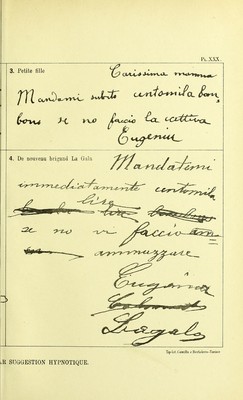 PL. XXX.
3. Petite fille
Carissima mamma
Mandami subito centomila bon,
bons se no faccio la cattiva
Eugenia
4. De nouveau brigand La Gala
Mandatemi
immediatamente centomila
lire
se no vi faccio am=
ammazzare
Lagala
AR SUGGESTION HYPNOTIQUE.